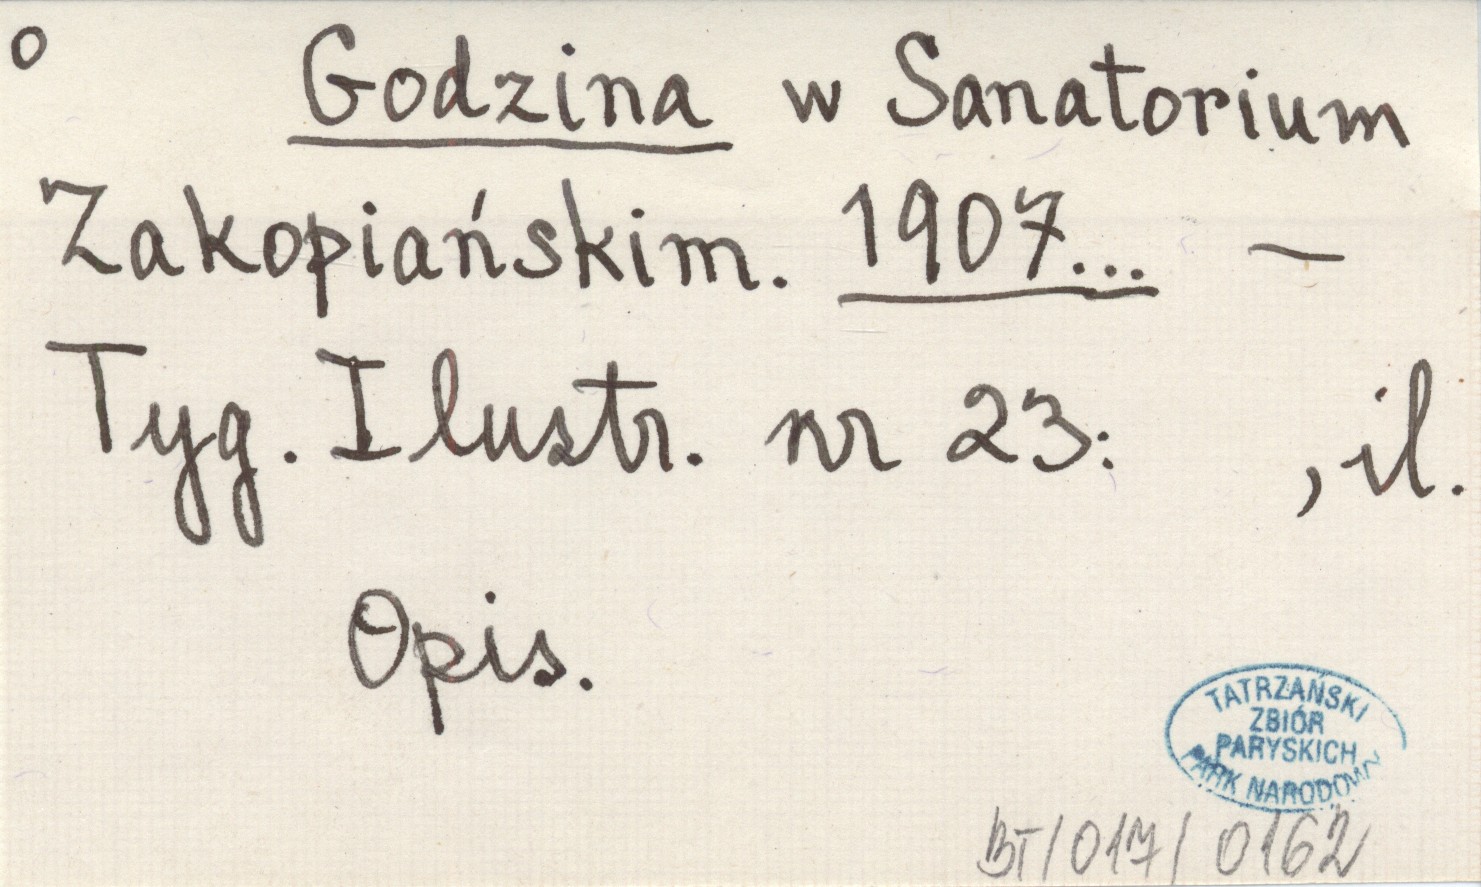 o Godzina w Sanatorium
Zakopiańskim. 1907... —
Tyg. Ilustr. nr 23: , il.
Opis.
TATRZAŃSKI
ZBIÓR
PARYSKICH
PARK NARODOWY
BT/017/0162